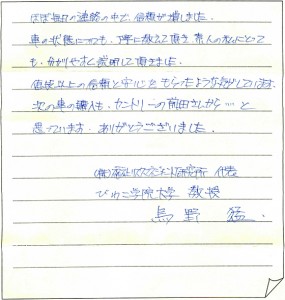 ほぼ毎日の連絡の中で、信頼が増しました。
車の状態についても、丁寧に教えて頂き、素人の私にとって
も、分かりやすく説明して頂きました。
値段以上の信頼と安心をもらったような気がしています。
次の車の購入も、セントリーの前田さんから…と
思っています。ありがとうございました。
(株) リスクマネジメント研究所 代表
びわこ学院大学 教授
烏野 猛